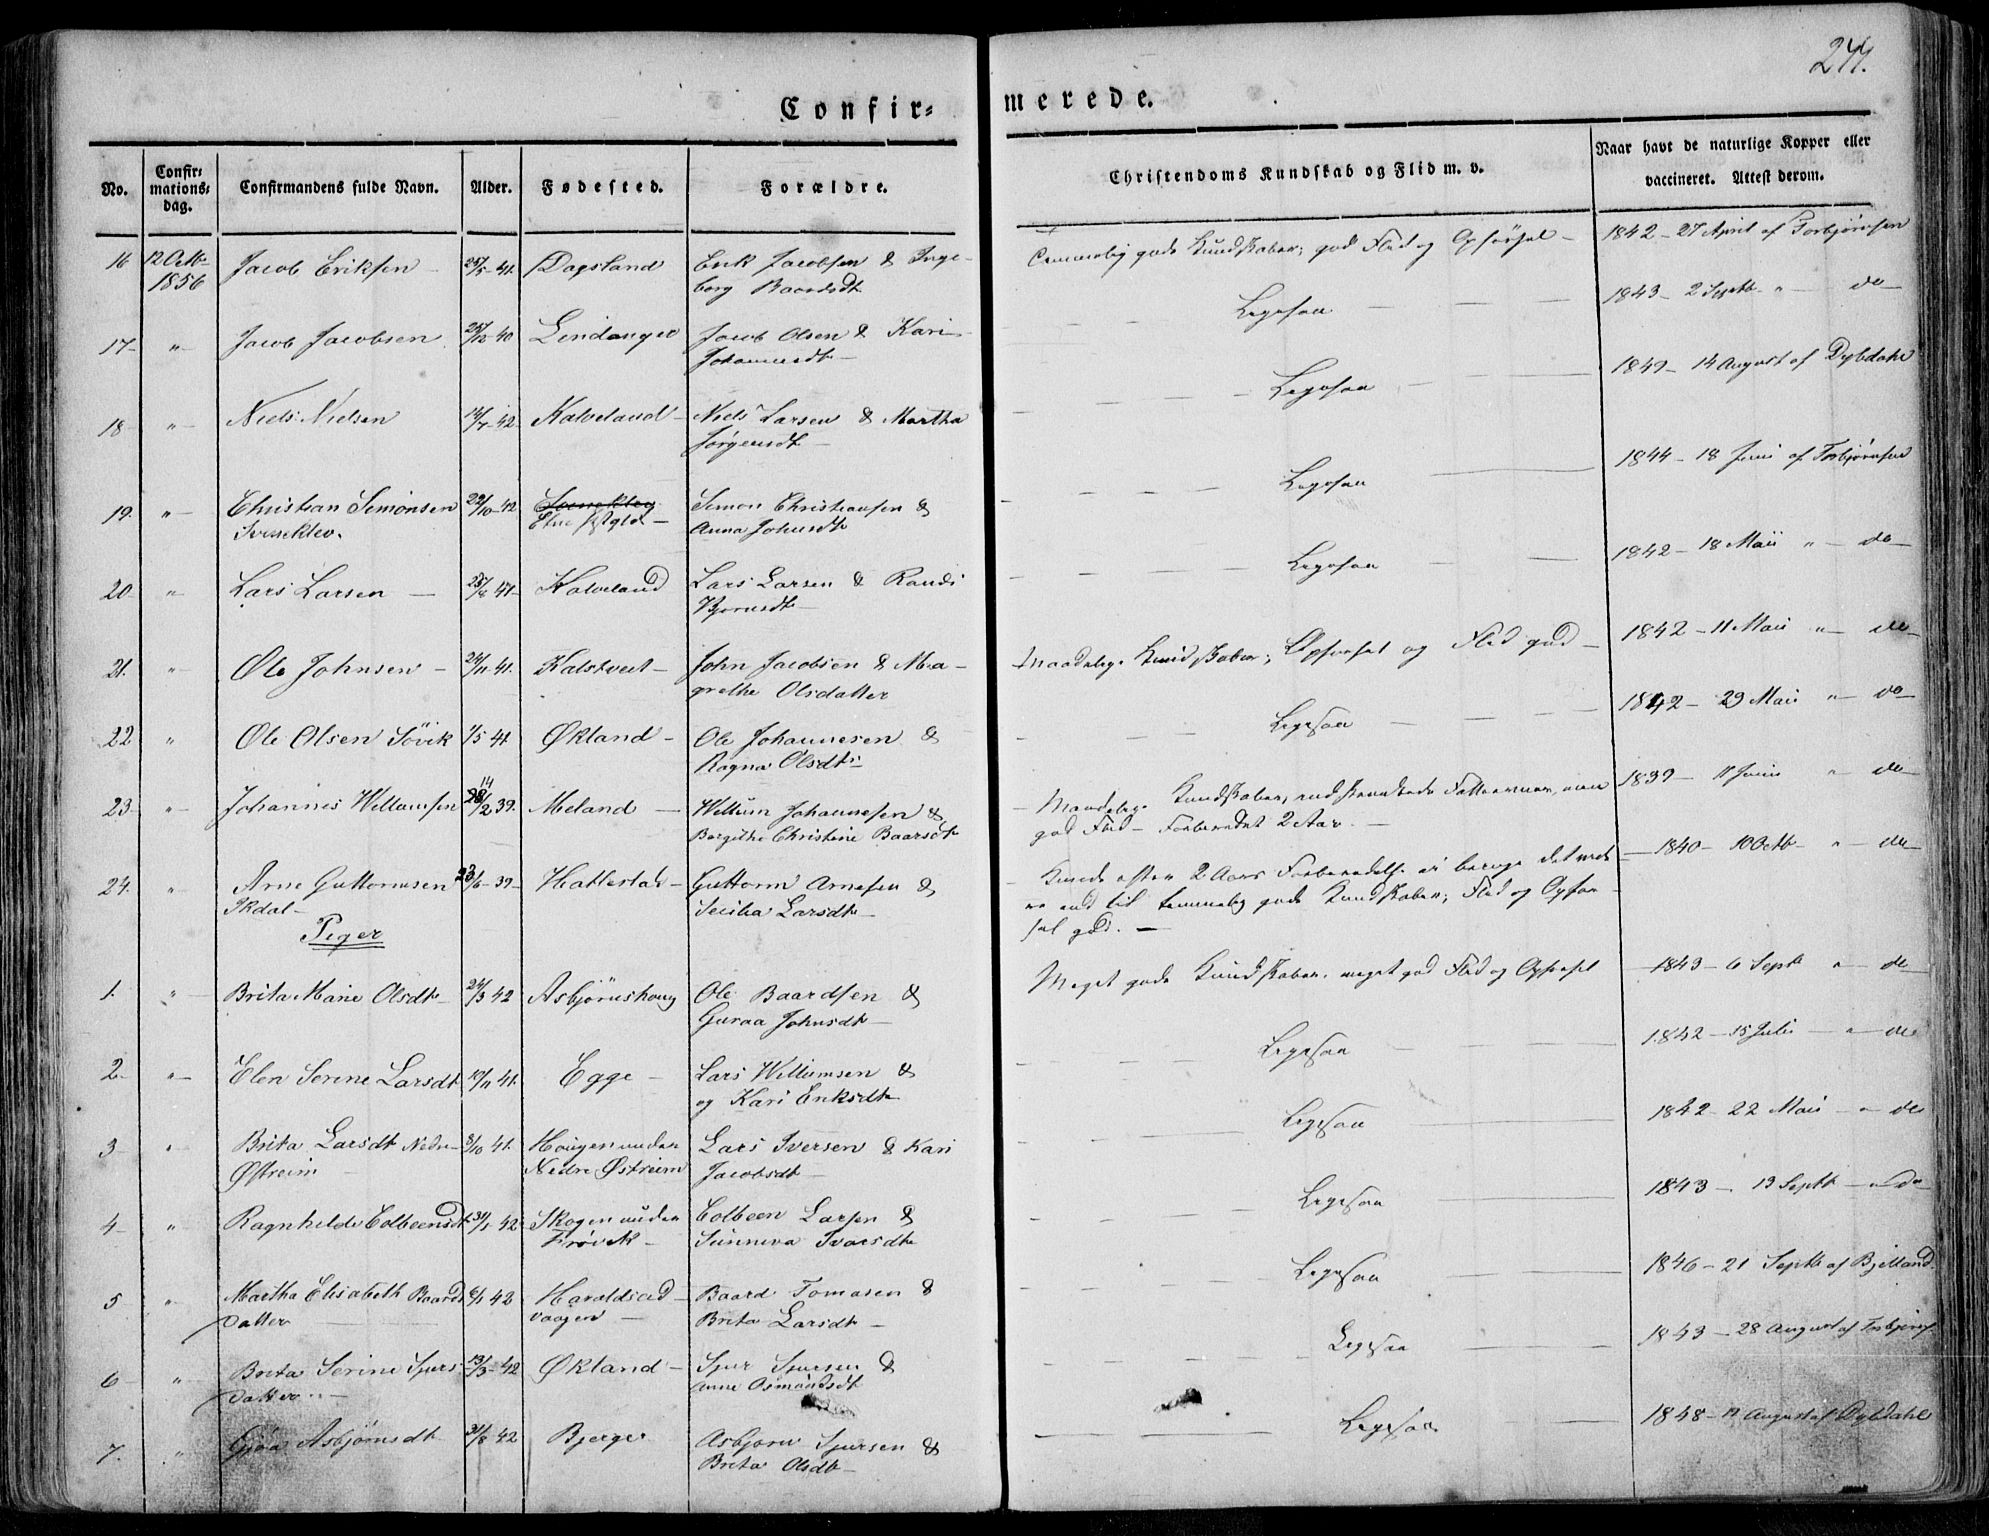 244.
Confir=
merede.
No.
Confir=
mations=
dag.
Confirmandens fulde Navn.
Alder.
Fødested.
Forældre.
Christendoms Kundskab og Flid m. v.
Naar havt de naturlige Kopper eller
vaccineret. Attest derom.
16 12 Octb. Jacob Eriksen - 41. Dagsland Erik Jacobsen & Inge-
1856 borg Baardsdt.
Temmelig gode Kundskaber; god Flid og Opførsel - 1842 - 27 April af Torbjørnsen
17 - " Jacob Jacobsen 40 Lindanger Jacob Olsen & Kari
Johannesdt -
Ligesaa 1843 - 2 Septb. " - do -
18 " Niels Nielsen 14/7-42 Kalveland - Niels Larsen & Martha
Jørgensdt -
Ligesaa 1849 - 14 August af Dybdahl
19. " Christian Simonsen 22/10-42 Etne - Simon Christiansen &
Svineklev. Anna Johnsdt
Ligesaa 1844 - 18 Juni af Torbjørnsen
20 " Lars Larsen - Kalveland Lars Larsen & Randi
Bjørnsdt -
Ligesaa 1842 - 18 Maii " - do -
21. " Ole Johnsen - 24/11 41. Kalstveit - John Jacobsen & Ma-
grethe Olsdatter
Maadelige Kundskaber; Opførsel og Flid god - 1842 - 11 Maii " - do -
22 " Ole Olsen Søvik 1/5 41 Økland - Ole Johannesen &
Ragna Olsdt -
Ligesaa 1842 - 29 Maii " - do -
23 " Johannes Willumsen 14/2 39. Meland - Willum Johannesen &
Bergithe Christine Baarsdt
Maadelige Kundskaber, indskrænkede Fatteevner, men
god Flid - Forberedet 2 Aar. - 1839 - Juni " - do -
24. " Arne Guttormsen 23/6-39 - Hattestad - Guttorm Arnesen &
Ikdal - Secilia Larsdt -
Kunde efter 2 Aars Forberedelse ei bringe det vide-
re end til temmelig gode Kundskaber; Flid og Opfør-
sel god. - 1840 - 10 Octb - " - do -
Piger
1. " Brita Marie Olsdt - 24/3 42 Asbjørnshaug Ole Baardsen &
Guroa Johnsdt -
Meget gode Kundskaber. meget god Flid og Opførsel 1843 - 6 Septb " - do -
2 - " Elen Serine Larsdt 19/11 41. Egge - Lars Willumsen &
og Kari Eriksdt
Ligesaa 1842 - 15 Juli - " - do
3 " Brita Larsdt Nedre 8/10 41. Haugen under Lars Iversen & Kari
Østreim - Nedre Østreim Jacobsdt -
Ligesaa 1842 - 22 Maii - " do
4 - " Ragnhilde Colbeensdt 31/1 42 Skogen under Colbeen Larsen &
Frøvik - Sunneva Ivarsdt
Ligesaa 1843 - 13 Septb - " do
5 " Martha Elisabeth Baards 6/1 42 Haraldseid - Baard Tomasen &
datter vaagen - Brita Larsdt -
Ligesaa 1846 - 21 Septb af Bjelland
6 - " Brita Serine Sjurs 13/3-42 Økland - Sjur Sjursen &
datter - Anne Osmundsdt
Ligesaa 1843 - 28 August af Torbjørns.
7. " Gjøa Asbjørnsdt 31/8 42 Bjerge Asbjørn Sjursen &
Brita Olsdt -
Ligesaa 1848 - August af Dybdahl